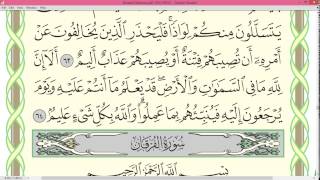 يَتَسَلَّلُونَ مِنكُمْ لِوَاذًا ۚ فَلْيَحْذَرِ الَّذِينَ يُخَالِفُونَ عَنْ
أَمْرِهِ أَن تُصِيبَهُمْ فِتْنَةٌ أَوْ يُصِيبَهُمْ عَذَابٌ أَلِيمٌ ٦٣ أَلَا إِنَّ
لِلَّهِ مَا فِي السَّمَاوَاتِ وَالْأَرْضِ ۖ قَدْ يَعْلَمُ مَا أَنتُمْ عَلَيْهِ وَيَوْمَ
يُرْجَعُونَ إِلَيْهِ فَيُنَبِّئُهُم بِمَا عَمِلُوا ۗ وَاللَّهُ بِكُلِّ شَيْءٍ عَلِيمٌ ٦٤
سُورَةُ الْفُرْقَانِ
بِسْمِ اللَّهِ الرَّحْمَٰنِ الرَّحِيمِ